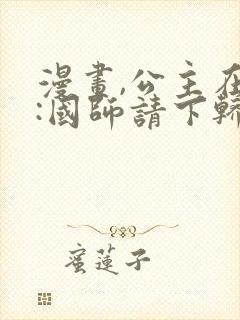 漫畫,公主在
:國師請下轎
蜜蓮子